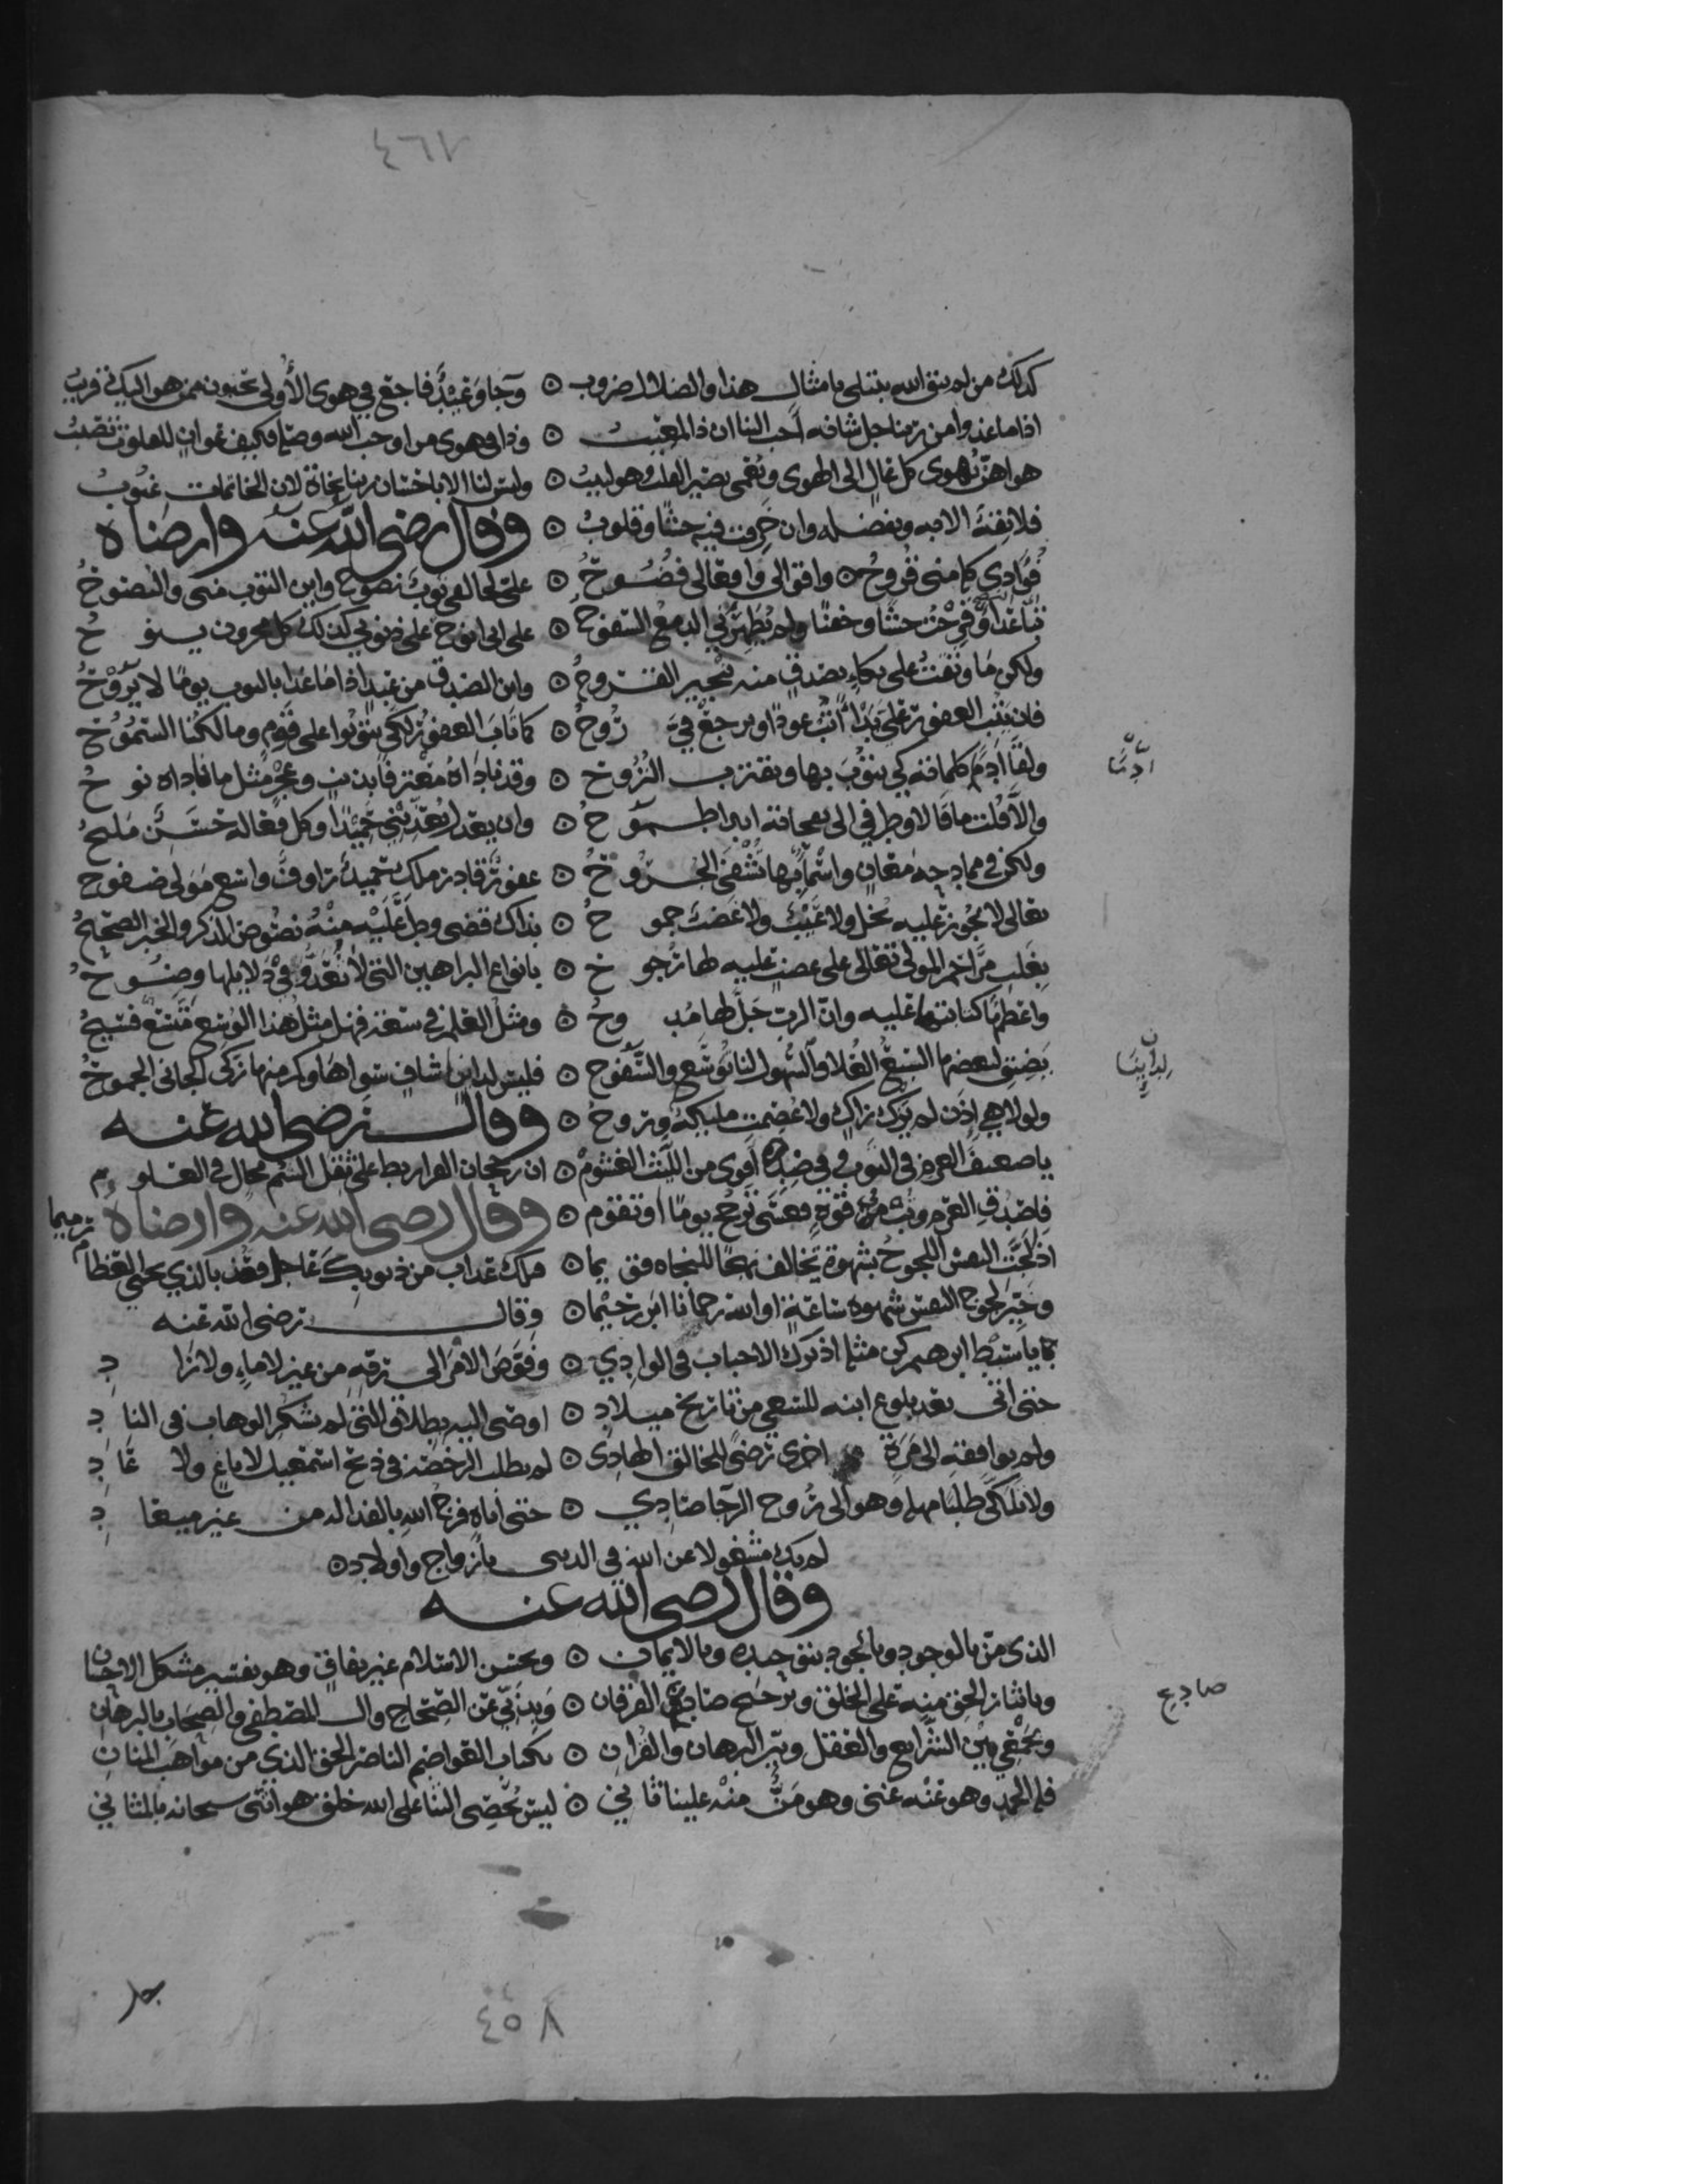 ٤٦٧
كذلك من لم يتق الله يبتلى بامثال هذا والضلال ضروب ٥ وجا وعيد فاجع في هوى الأولى تحبون من هو اليك قريب
اذا ما غدوا من ربنا جل شانه أحب الينا ان ذا لمعيب ٥ وذا في هوى من اوجب الله وصلهم فكيف غوان للعلوق تصيب
هواهن يهوى كل غال الى الهوى ويعمى بصير القلب وهو لبيب ٥ وليس لنا الا باحسان ربنا نجاة لان الخاتمات غيوب
فلا ثقة الا به وبفضله وان خرقت فيه حشا وقلوب ٥ وقال رضي الله عنه وارضاه
فؤادي كامنى قروح ٥ وافوالي وافعالي فضوح ٥ على تحالفي توب نصوح واين التوب منى والنصوح
تباعدا وقرحت حشا وخفنا ولم يطهرني الدمع السفوح ٥ على انى انوح على ذنوبي كذلك كل محزون ينوح
ولكن ما وثقت على بكاء بصدق منه تنجبر القروح ٥ واين الصدق من عبد اذا ما غدا بالتوب يوما لا يروح
فان يتب العفو علي بدأ أتب عودا ويرجع في روح ٥ كما تاب العفو لكي يتوبوا على قوم ومالكنا السموح
ولقا آدم كلماته كي يتوب بها ويقترب النزوح ٥ وقد ناداه معترفا بذنب وعجز مثل ما ناداه نوح
والا قلت ما قالا وطرفي الى نجاته ابدا طموح ٥ وان يعدل يعذبني حميدا وكل فعاله حسن مليح
ولكن في ممادحه معان واسماء بها تشفى الجروح ٥ عفو قادر ملك حميد رءاوف واسع مولى صفوح
تعالى لا يجوز عليه بخل ولا عيب ولا غضب جموح ٥ بذاك قضى ودل عليه منه نصوص الذكر والخبر الصحيح
بغلب مراحم المولى تعالى على غضب عليه لها رجوح ٥ بانواع البراهين التي لا تعد وفي دلايلها وضوح
واعظمها كتابتها عليه وان الرب جل لها مبوح ٥ ومثل العلم في سعة فهل مثل هذا الوسع متسع فسيح
يضيق لبعضها السبع العلا والسهول لنا توسع والسفوح ٥ فليس لداين شاف سواها وكم منها زكى الجاني الجموح
ولولا هي إذن لم يزك زاك ولا عصمت مليكة وروح ٥ وقال رضي الله عنه
يا ضعيف العزم في التوب وفي ضده أقوى من الليث الغشوم ٥ ان رجحان القرار بط على ثقل السم محال في العلوم
فاصدق العزم وتب من قوة فعسى ترجح يوما او تقوم ٥ وقال رضي الله عنه وارضاه
اذ لجت النفس اللجوج بشهوة تخالف نهجا للنجاه قويما ٥ فلك عذاب من ذنوبك عاجل فعذ بالذي يحيي العظام رميما
وخير لجوج النفس شهوة ساعة او الله رحمانا ابر رحيما ٥ وقال رضي الله عنه
يا سبط ابرهيم كن مثله اذ ترك الاحباب في الوادي ٥ وفوض الامر الى ربه من غير لا ماء ولا زاد
حتى اتى بعد بلوغ ابنه للسعي من تاريخ ميلاد ٥ اوصى اليه بطلاق التي لم تشكر الوهاب في الناد
ولم يوافقه الى مرة اخرى رضى للخالق الهادى ٥ لم يطلب الرخصة في ذبح اسمعيل لا باغ ولا عاد
ولا تلكى طلبا مهلة وهو الى روح الرجا صادي ٥ حتى اتاه فرج الله بالفدا له من غير ميعاد
لم يك مشغولا عن الله في الدنيى بازواج واولاد ٥
وقال رضي الله عنه
الذى من بالوجود وبالجود بتوحيده وبالايمان ٥ وبحسن الاسلام غير نفاق وهو تفسير مشكل الاحسان
وبايثار الحق منه على الخلق وترجيح صادع الفرقان ٥ وبذبي عن الصحاح وال المصطفى والصحاب بالبرهان
وبجمعي بين الشرايع والعقل وبين البرهان والقران ٥ بكتاب العواصم الناصر الحق الذي من مواهب المنان
فله الحمد وهو عنه غنى وهو من منه علينا ثاني ٥ ليس يحصى الثنا على الله خلق هو اثنى سبحانه بالمثاني
صادع
٤٥٨